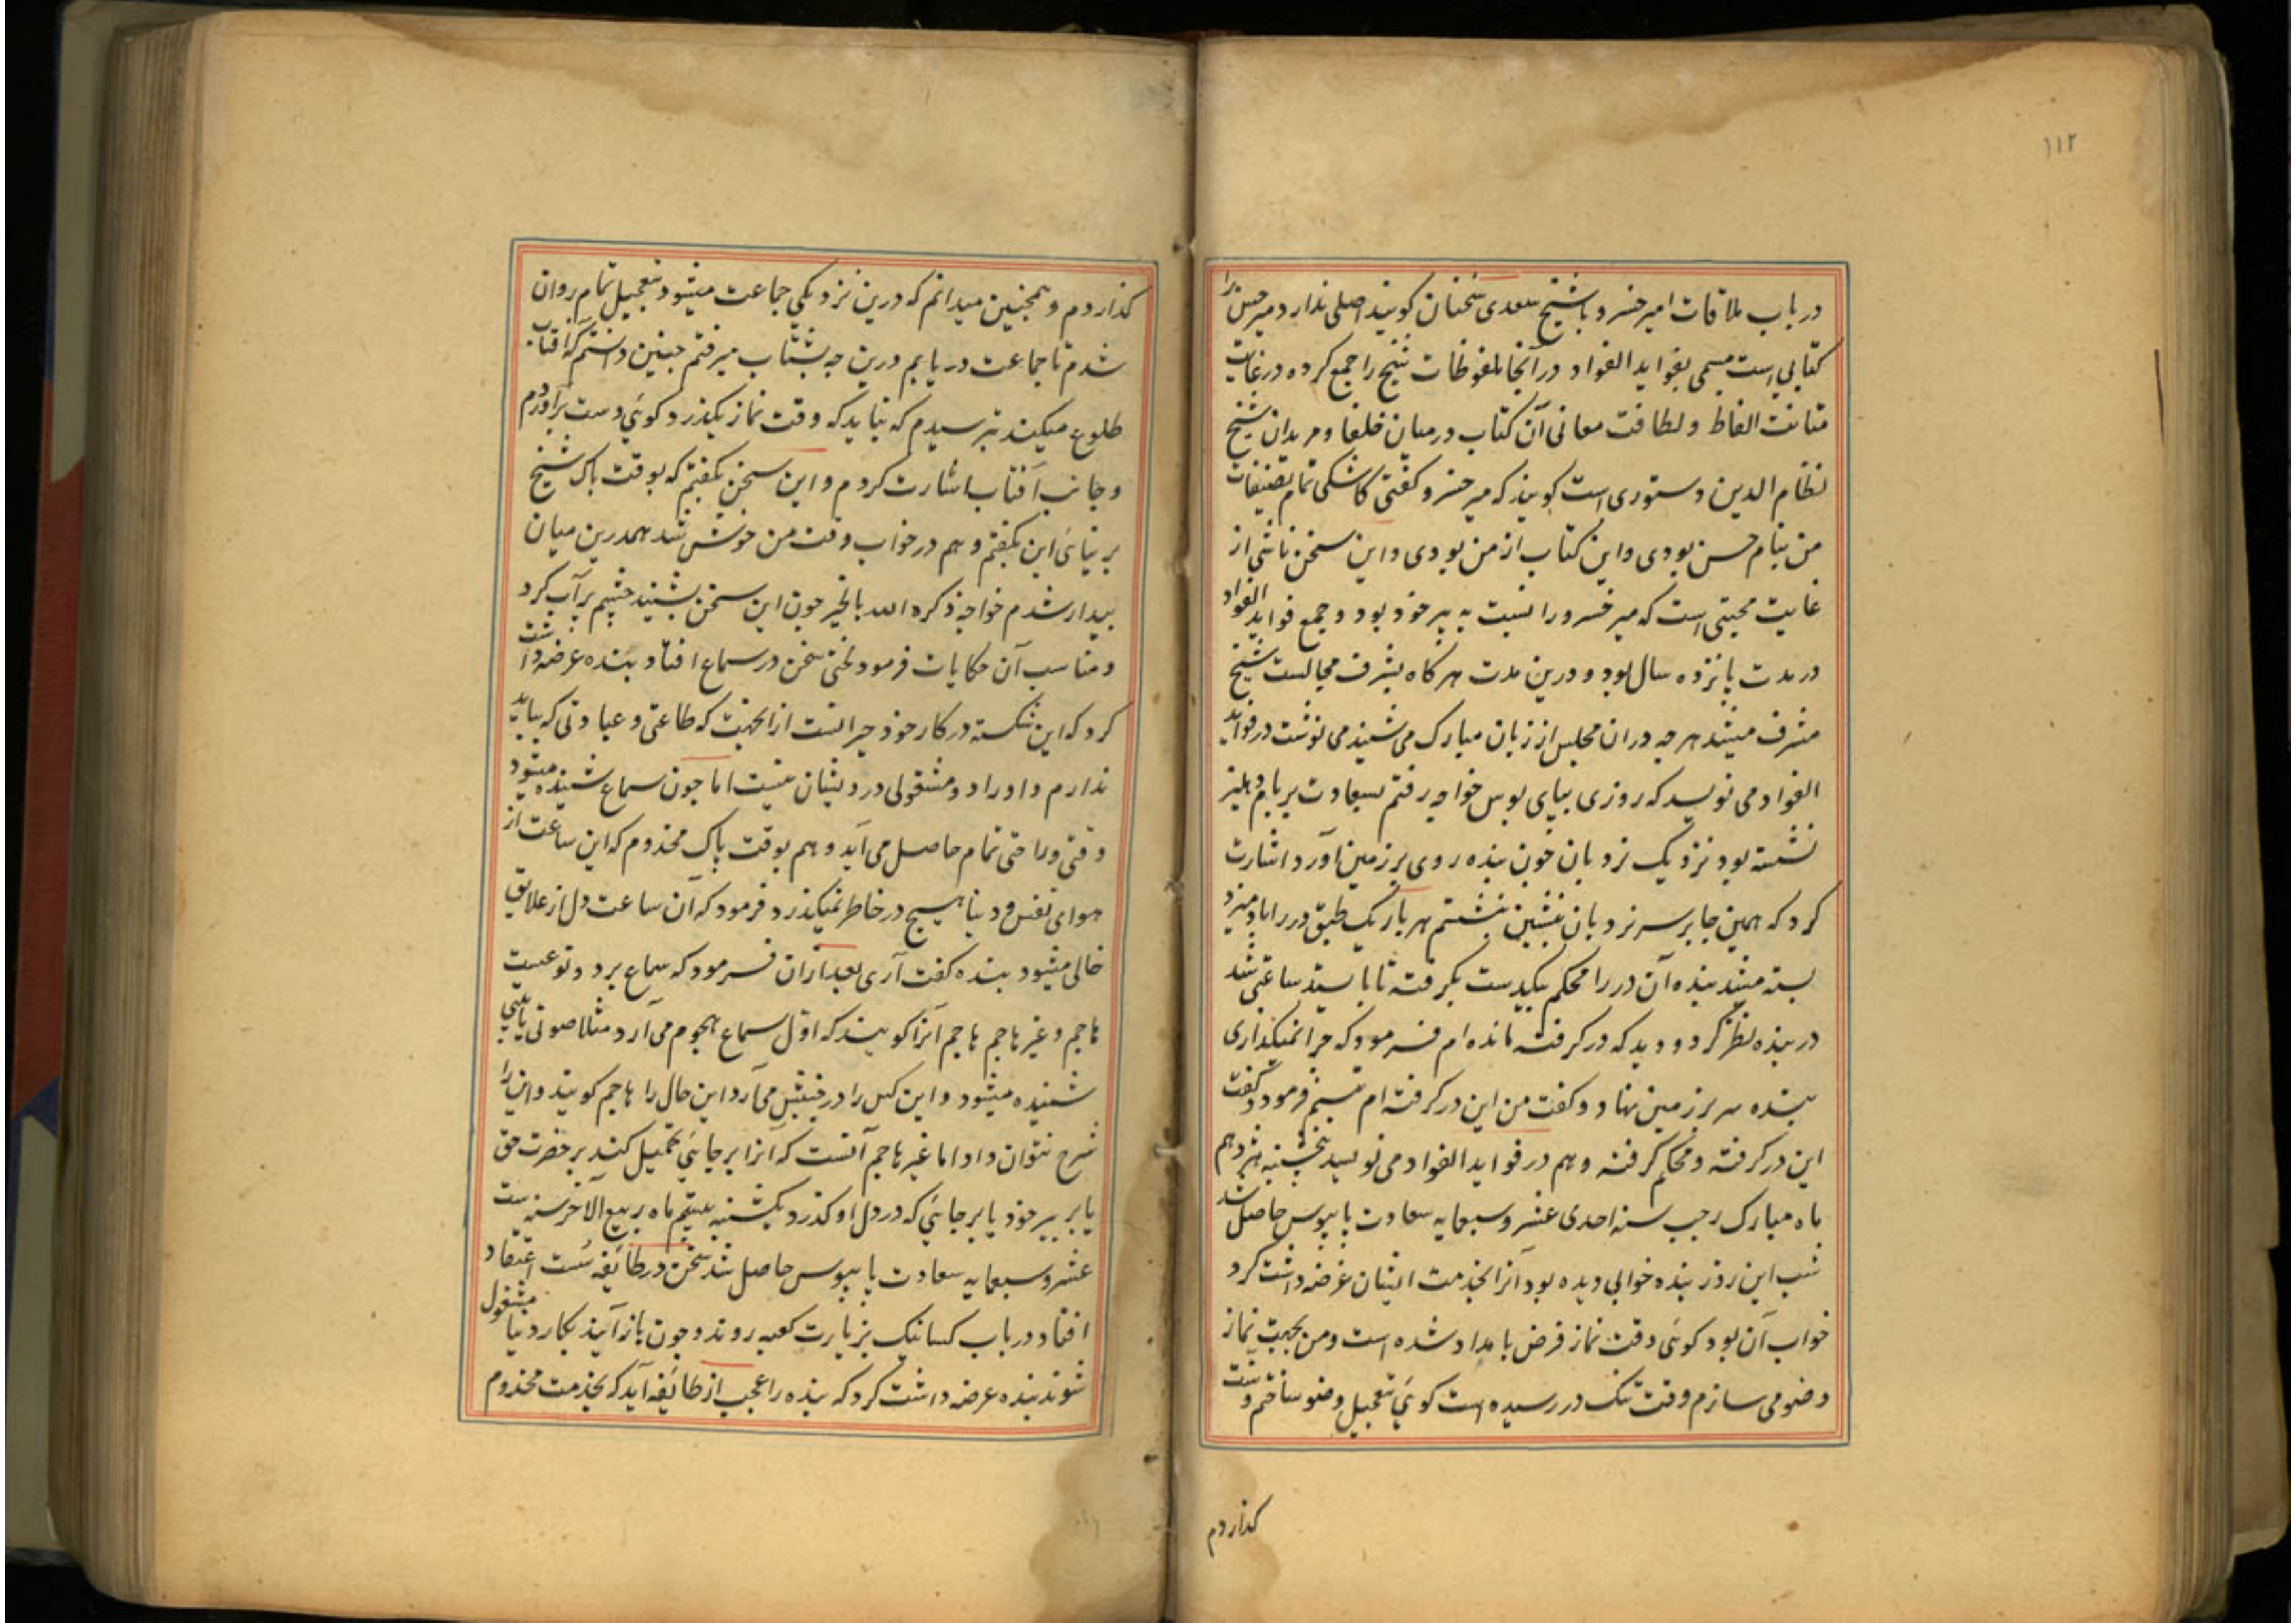 ۱۱۲
در باب ملاقات امیر خسرو با شیخ سعدی سخنان کویند اصلی ندارد میر حسن را
کتابی است مسمی بفواید الفواد در آنجا ملفوظات شیخ را جمع کرده در غایت
متانت الفاظ و لطافت معانی آن کتاب در میان خلفا و مریدان شیخ
نظام الدین دستوری است کویند که میر خسرو کفتی کاشکی تمام تصنیفات
من بنام حسن بودی و این کتاب از من بودی و این سخن ناشی از
غایت محبتی است که میر خسرو را نسبت به پیر خود بود و جمع فواید الفواد
در مدت پانزده سال بود و درین مدت هر کاه بشرف مجالست شیخ
مشرف میشد هر چه دران مجلس از زبان مبارک می شنید می نوشت در فواید
الفواد می نویسد که روزی بپای بوس خواجه رفتم بسعادت بر بام دهلیز
نشسته بود نزدیک نردبان چون بنده روی بر زمین آورد اشارت
کرد که همین جا بر سر نردبان بنشین بنشستم هر بار یک طبق در را باد میزد
بسته میشد بنده آن در را محکم بیکدست بکرفته تا باستید ساعتی شد
در بنده نظر کرد و دید که در کرفته مانده ام فرمود که چرا نمیکذاری
بنده سر بر زمین نهاد و کفت من این در کرفته ام تبسم فرمود و کفت
این در کرفته و محکم کرفته و هم در فواید الفواد می نویسد پنجشنبه هژدهم
ماه مبارک رجب سنه احدی عشر و سبعمایه سعادت پابوس حاصل شد
شب این روز بنده خوابی دیده بود آنرا بخدمت ایشان عرضه داشت کرد
خواب آن بود کوئی وقت نماز فرض بامداد شده است و من بجهت نماز
وضو می سازم وقت تنک در رسیده است کوئی بتعجیل وضو ساختم و سنت
کذاردم
کذاردم و همچنین میدانم که درین نزدیکی جماعت میشود بتعجیل تمام روان
شدم تا جماعت دریابم درین چه بشتاب میرفتم چنین دانستم که افتاب
طلوع میکند بترسیدم که نباید که وقت نماز بکذرد کوئی دست براوردم
و جانب افتاب اشارت کردم و این سخن بکفتم که بوقت پاک شیخ
بر نیائی این بکفتم و هم در خواب وقت من خوش شد همدرین میان
بیدار شدم خواجه ذکره الله بالخیر چون این سخن بشنید چشم پر آب کرد
و مناسب آن حکایات فرمود لختی سخن در سماع افتاد بنده عرضه داشت
کرد که این شکسته در کار خود حیرانست ازانجهت که طاعتی و عبادتی که بباید
ندارم و اوراد و مشغولی درویشان نیست اما چون سماع شنیده میشود
وقتی و راحتی تمام حاصل می آید و هم بوقت پاک مخدوم که این ساعت از
هوای نفس و دنیا هیچ در خاطر نمیکذرد فرمود که آن ساعت دل از علایق
خالی میشود بنده کفت آری بعدازان فرمود که سماع بر دو نوعست
هاجم و غیر هاجم هاجم آنرا کویند که اول سماع هجوم می آرد مثلا صوتی یا بیتی
شنیده میشود و این کس را در جنبش می آرد این حال را هاجم کویند و این را
شرح نتوان داد اما غیر هاجم آنست که آنرا بر جائی تحمیل کند بر حضرت حق
یا بر پیر خود یا بر جائی که در دل او کذرد یکشنبه بیستم ماه ربیع الاخر سنه ست
عشر و سبعمایه سعادت پابوس حاصل شد سخن در طائفه سست اعتقاد
افتاد در باب کسانیک بزیارت کعبه روند و چون باز آیند بکار دنیا مشغول
شوند بنده عرضه داشت کرد که بنده را عجب از طائفه آید که بخدمت مخدوم